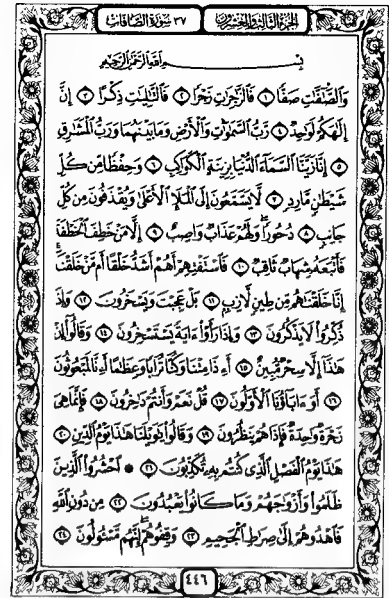 الجزء الثالث والعشرون
٣٧ سورة الصافات
بِسْمِ اللَّهِ الرَّحْمَٰنِ الرَّحِيمِ
وَالصَّٰٓفَّٰتِ صَفًّا ١ فَالزَّٰجِرَٰتِ زَجْرًا ٢ فَالتَّٰلِيَٰتِ ذِكْرًا ٣ إِنَّ
إِلَٰهَكُمْ لَوَٰحِدٌ ٤ رَّبُّ السَّمَٰوَٰتِ وَالْأَرْضِ وَمَا بَيْنَهُمَا وَرَبُّ الْمَشَٰرِقِ
٥ إِنَّا زَيَّنَّا السَّمَآءَ الدُّنْيَا بِزِينَةٍ الْكَوَاكِبِ ٦ وَحِفْظًا مِّن كُلِّ
شَيْطَٰنٍ مَّارِدٍ ٧ لَّا يَسَّمَّعُونَ إِلَى الْمَلَإِ الْأَعْلَىٰ وَيُقْذَفُونَ مِن كُلِّ
جَانِبٍ ٨ دُحُورًا وَلَهُمْ عَذَابٌ وَاصِبٌ ٩ إِلَّا مَنْ خَطِفَ الْخَطْفَةَ
فَأَتْبَعَهُ شِهَابٌ ثَاقِبٌ ١٠ فَاسْتَفْتِهِمْ أَهُمْ أَشَدُّ خَلْقًا أَم مَّنْ خَلَقْنَا
إِنَّا خَلَقْنَٰهُم مِّن طِينٍ لَّازِبٍ ١١ بَلْ عَجِبْتَ وَيَسْخَرُونَ ١٢ وَإِذَا
ذُكِّرُوا لَا يَذْكُرُونَ ١٣ وَإِذَا رَأَوْا ءَايَةً يَسْتَسْخِرُونَ ١٤ وَقَالُوٓا إِنْ
هَٰذَآ إِلَّا سِحْرٌ مُّبِينٌ ١٥ أَءِذَا مِتْنَا وَكُنَّا تُرَابًا وَعِظَٰمًا أَءِنَّا لَمَبْعُوثُونَ
١٦ أَوَءَابَآؤُنَا الْأَوَّلُونَ ١٧ قُلْ نَعَمْ وَأَنتُمْ دَٰخِرُونَ ١٨ فَإِنَّمَا هِيَ
زَجْرَةٌ وَٰحِدَةٌ فَإِذَا هُمْ يَنظُرُونَ ١٩ وَقَالُوا يَٰوَيْلَنَا هَٰذَا يَوْمُ الدِّينِ ٢٠
هَٰذَا يَوْمُ الْفَصْلِ الَّذِي كُنتُم بِهِ تُكَذِّبُونَ ٢١ * احْشُرُوا الَّذِينَ
ظَلَمُوا وَأَزْوَٰجَهُمْ وَمَا كَانُوا يَعْبُدُونَ ٢٢ مِن دُونِ اللَّهِ
فَاهْدُوهُمْ إِلَىٰ صِرَٰطِ الْجَحِيمِ ٢٣ وَقِفُوهُمْ إِنَّهُم مَّسْئُولُونَ ٢٤
٤٤٦